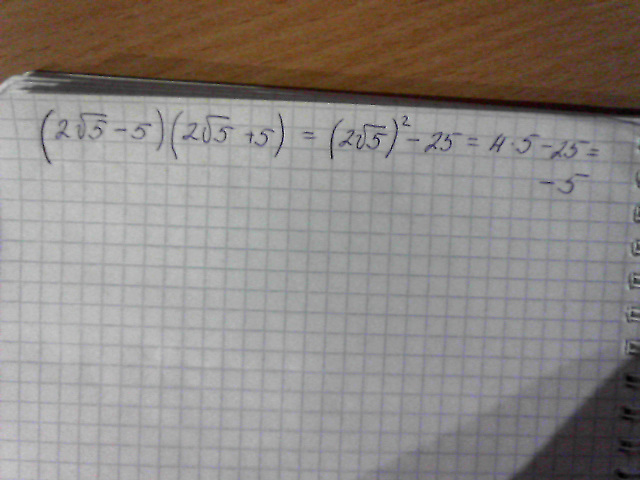 (2√5 - 5)(2√5 + 5) = (2√5)² - 25 = 4·5 - 25 =
-5